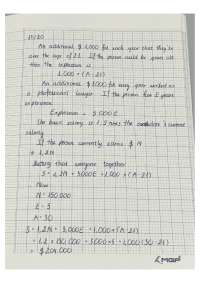 17/20
An additional $ 1,000 for each year that they're
over the age of 21. If the person would be years old
then the expression is
1,000 × (A - 21)
An additional $ 3,000 for every year worked as
a professional lawyer. If the person has E years
experience
Expression = 3,000 E
The basic salary is 1.2 times the current
salary
If the person currently earns $ N
= 1.2N
Putting that everyone together
S = 1.2N + 3,000E + 1,000 × (A - 21)
Now
N = 150,000
E = 5
A = 30
S = 1.2N + 3,000E + 1,000 × (A - 21)
= 1.2 × 150,000 + 3,000 × 5 + 1,000 (30 - 21)
= $ 204,000